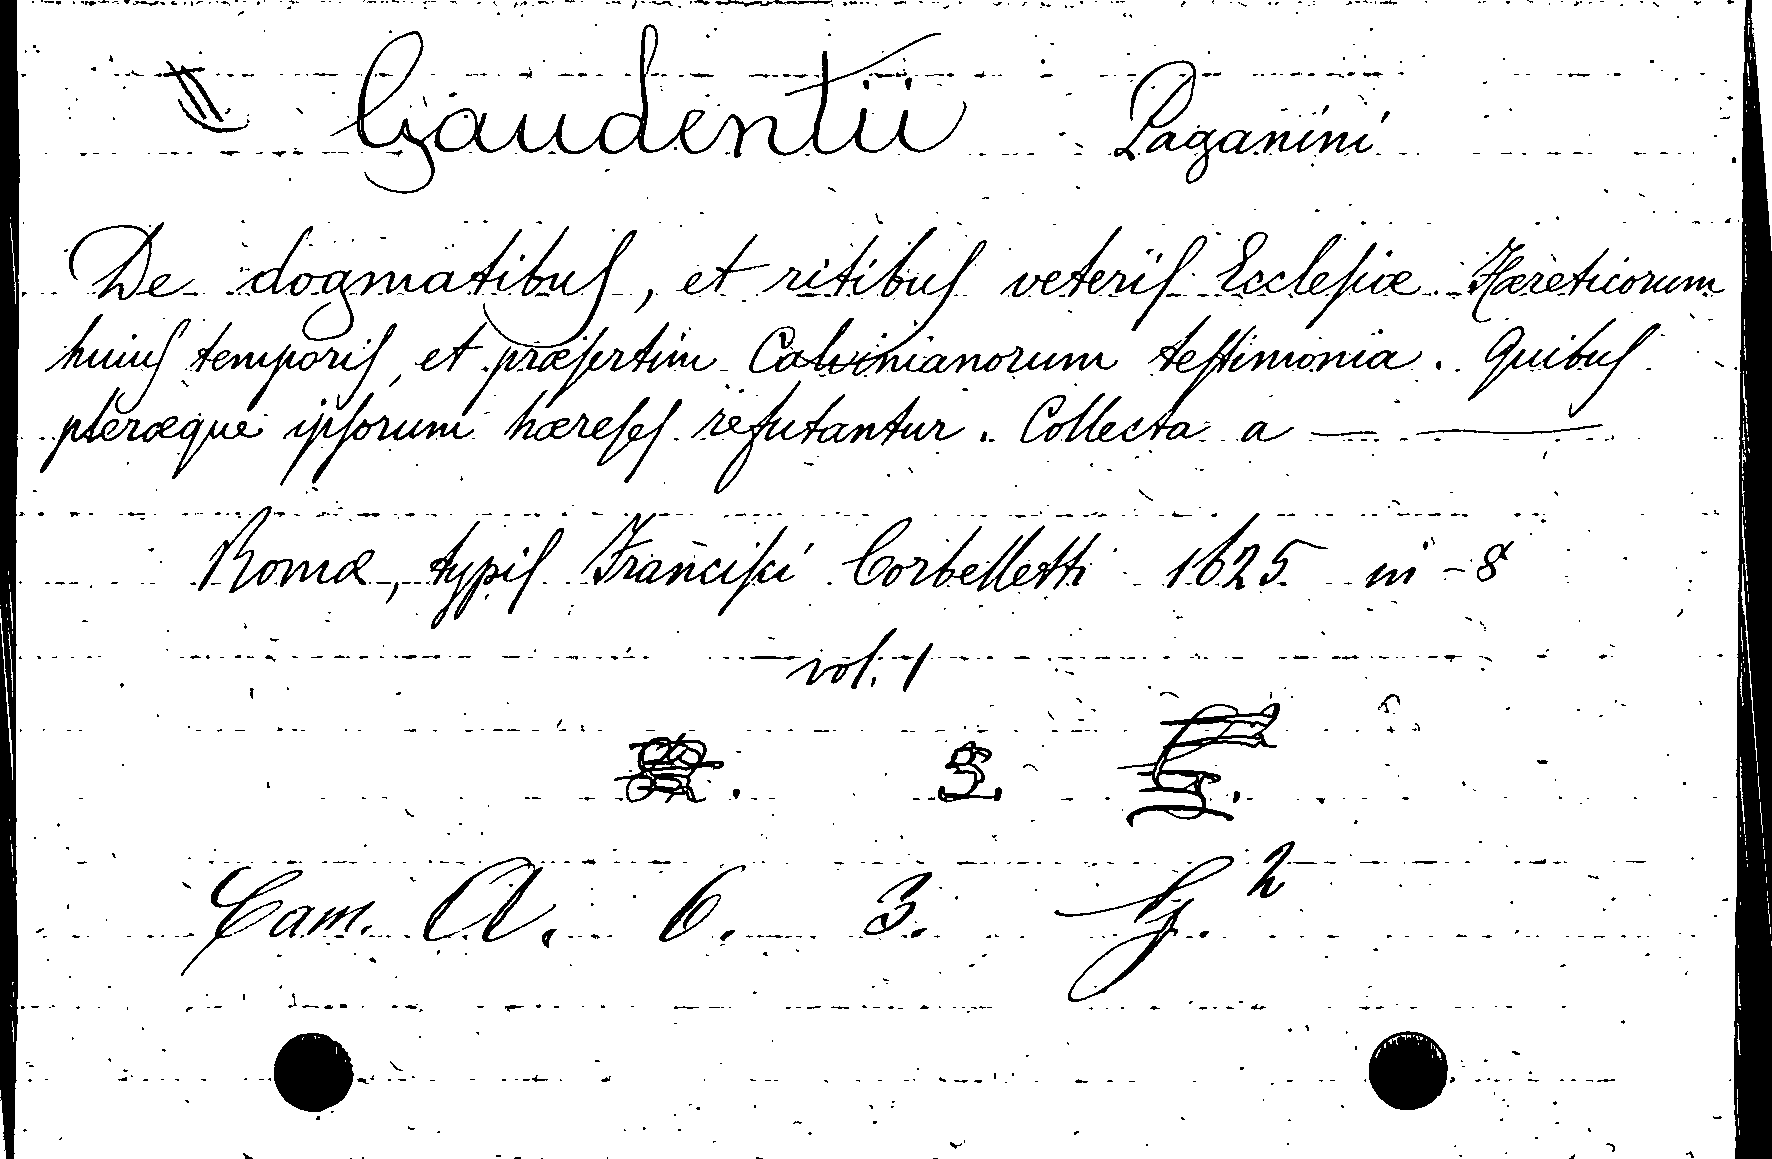 Gaudentii Paganini
De dogmatibuſ, et ritibuſ veteriſ Eccleſiæ Hæreticorum
huiuſ temporiſ, et præſertim Calvinianorum teſtimonia. Quibuſ
pleræque ipſorum hæreſeſ refutantur. Collecta a — ———
Romæ, typiſ Franciſci Corbelletti 1625 in-8
vol. 1
3.
Cam. A. 6. 3. G.²